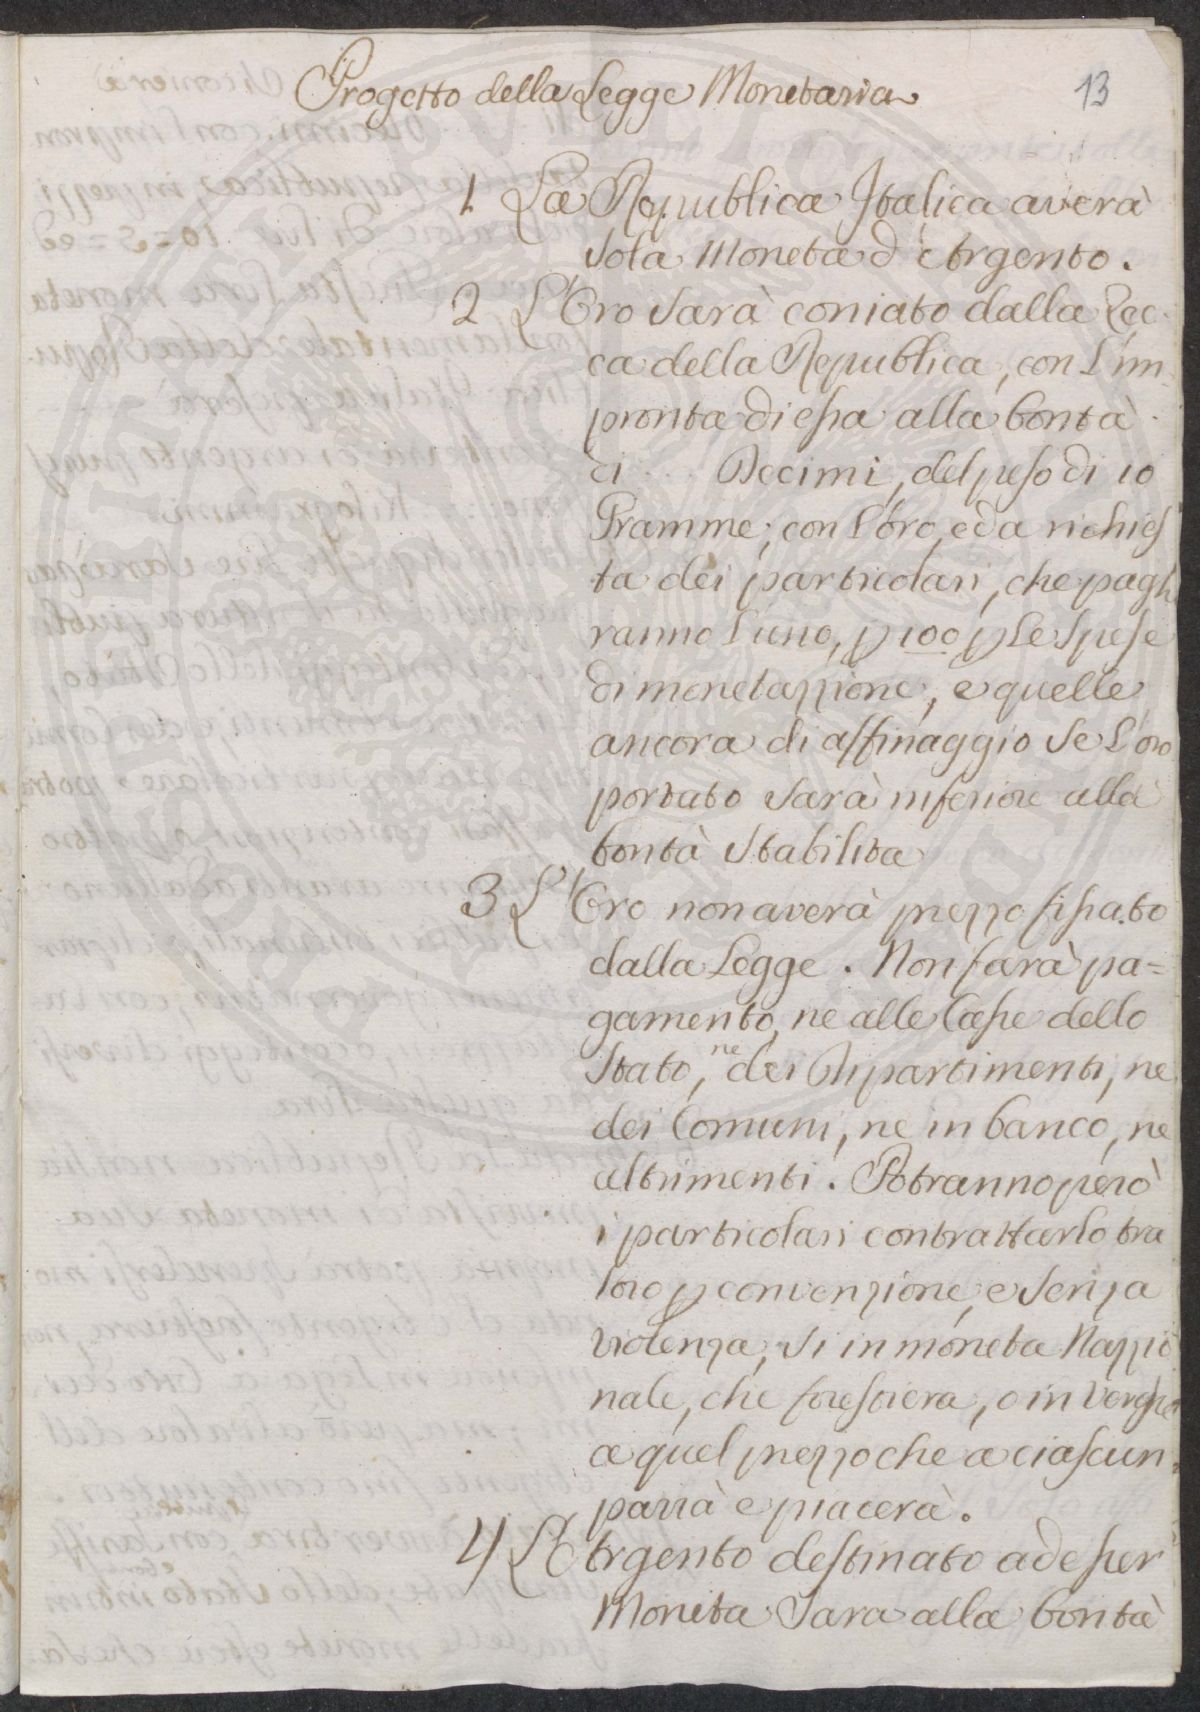 Progetto della Legge Monetaria
13
1. La Republica Italica averà
sola Moneta d'Argento.
2 L'Oro sarà coniato dalla Zec-
ca della Republica, con l'im-
pronta di essa alla bontà
di ... Decimi, del peso di 10
Gramme; con l'oro, ed a richies
ta dei particolari, che paghe
ranno l'uno, p 100 p le spese
di monetazzione, e quelle
ancora di affinaggio se l'oro
portato sarà inferiore alla
bontà stabilita
3 L'Oro non averà prezzo fissato
dalla Legge. Non farà pa=
gamento, ne alle Casse dello
Stato, ne dei Dipartimenti, ne
dei Comuni, ne in banco, ne
altrimenti. Potranno però
i particolari contrattarlo tra
loro p convenzione, e senza
violenza, si in moneta Nazzio
nale, che forestiera, o in Verghe
a quel prezzo che a ciascun
parrà e piacerà.
4 L'Argento destinato ad esser
Moneta sara alla bontà